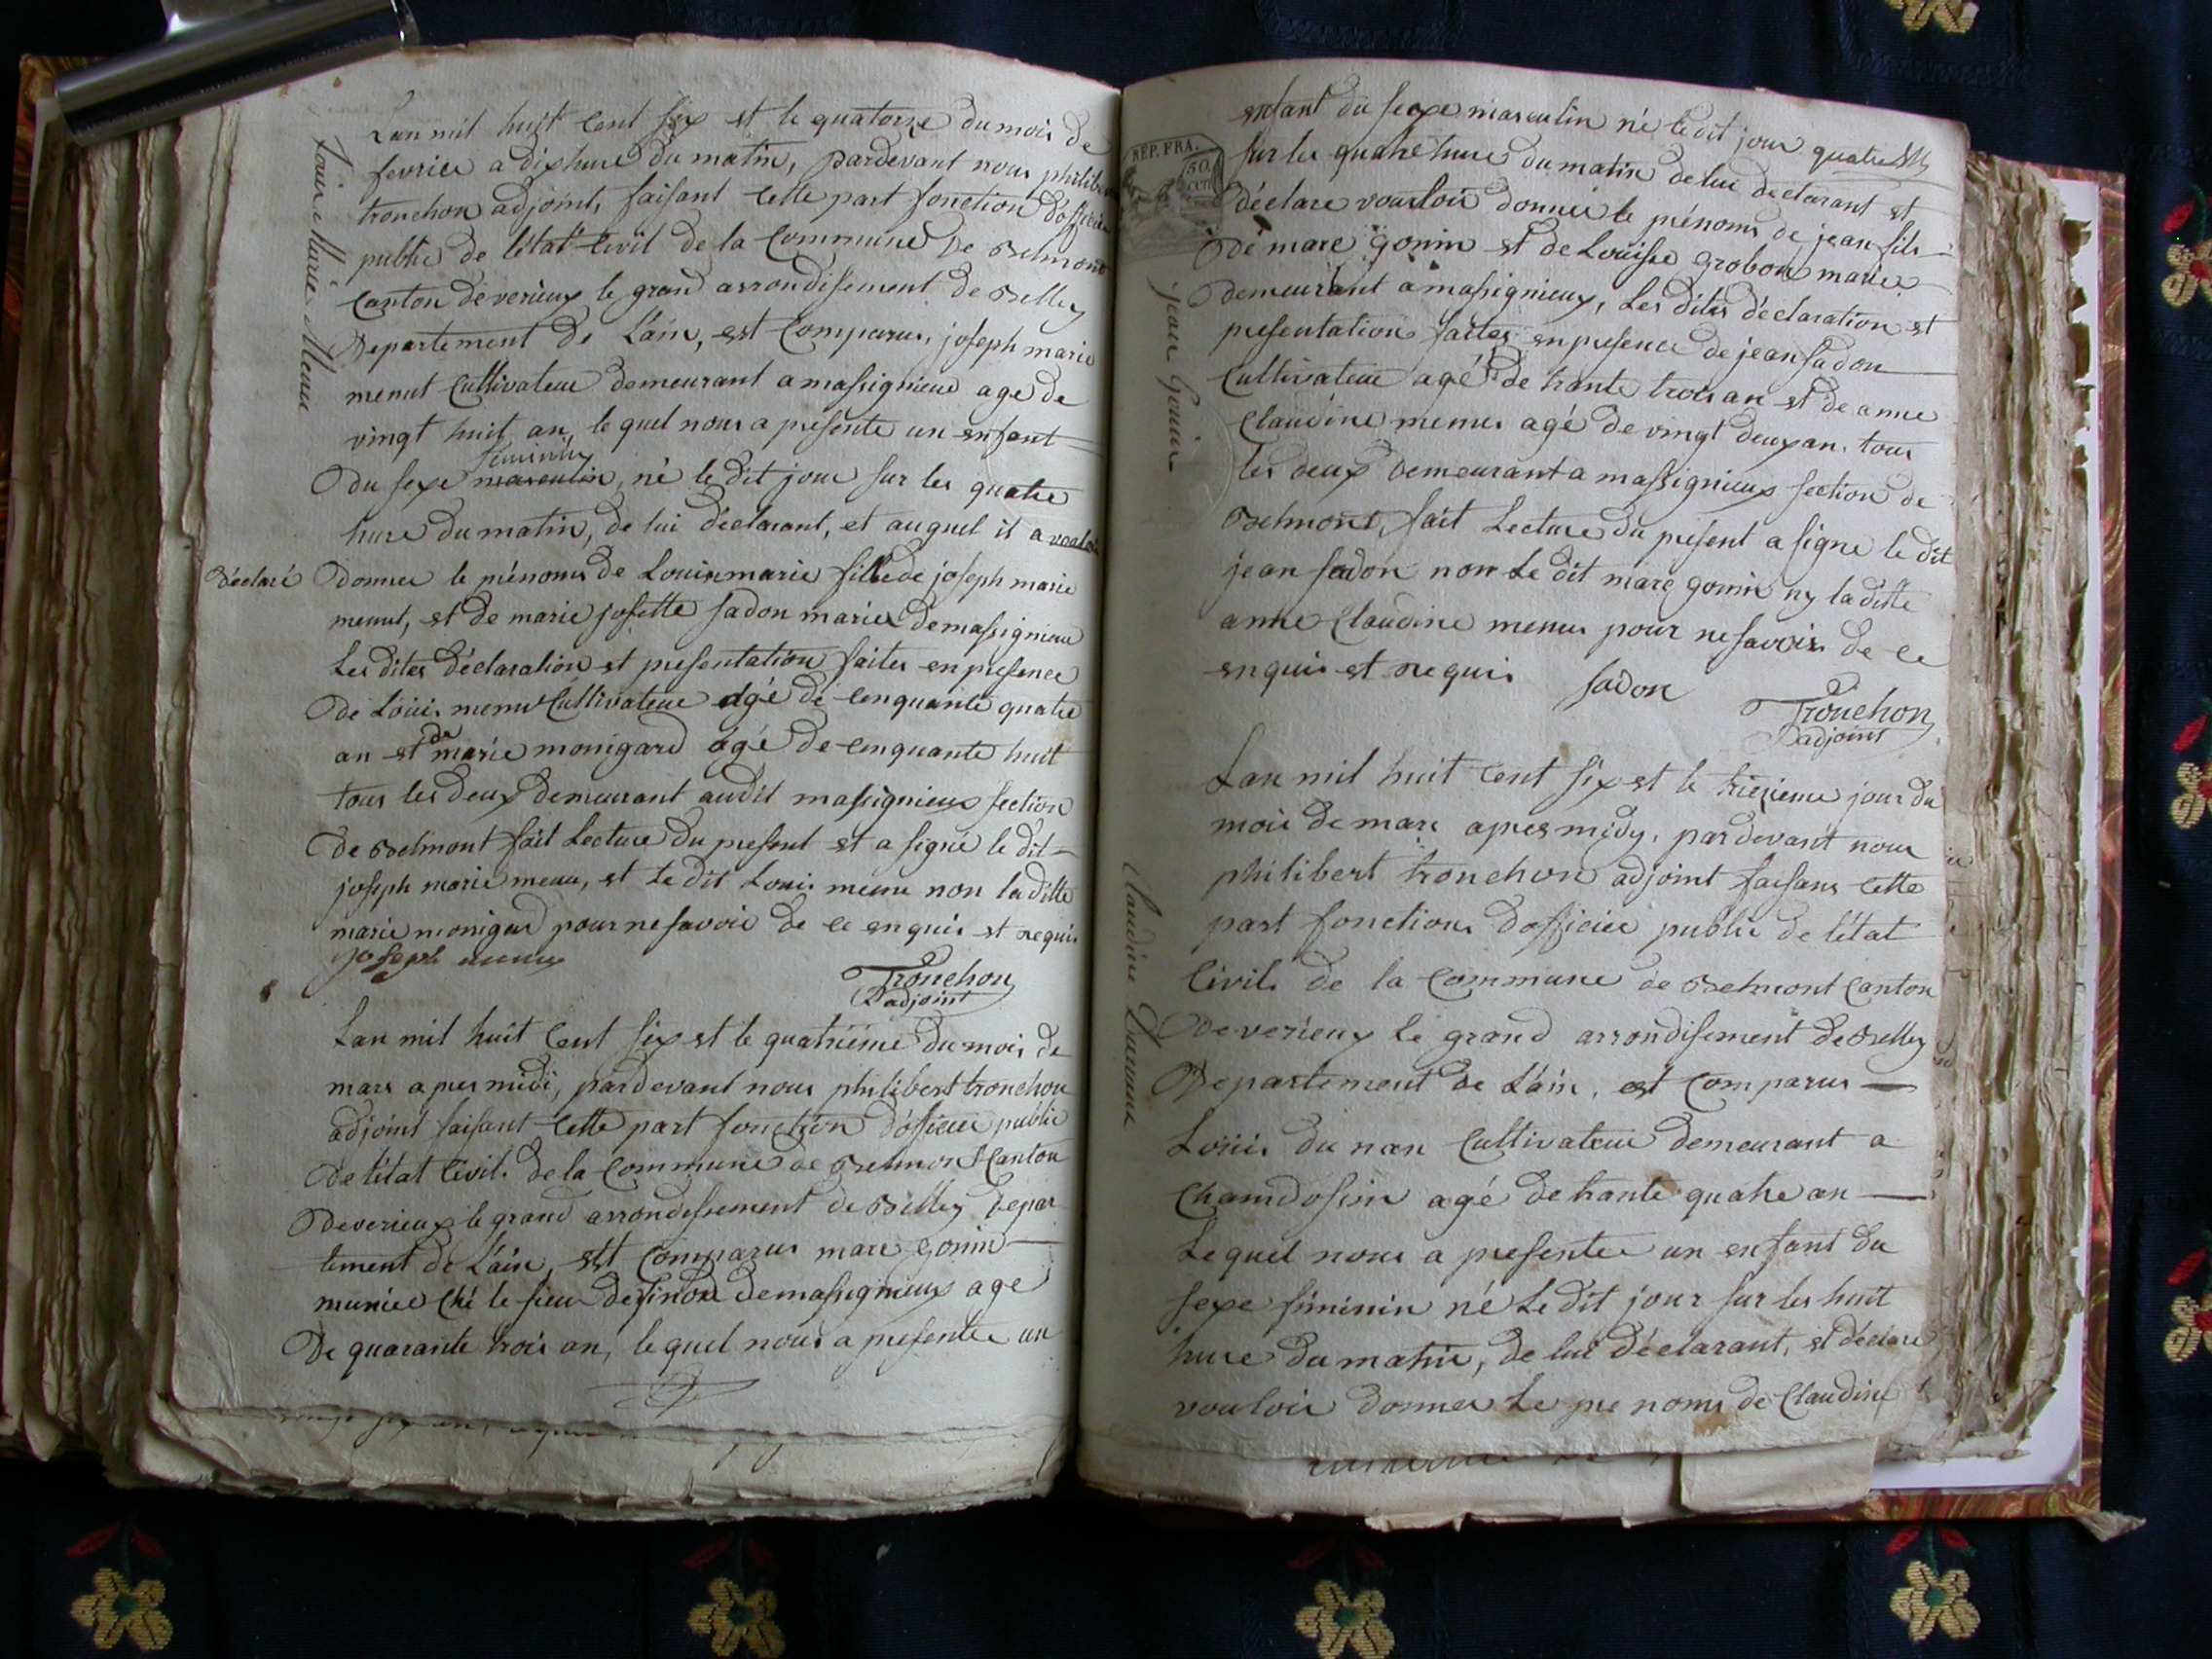 Louise Marie Menu
Lan mil huit Cent six et le quatorze du mois de
fevrier a dix hure du matin, pardevant nous philibert
tronchon adjoint, faisant Cette part fonction d'officier
public de létat Civil de la Commune De Belmont
Canton de verieux le grand arrondissement de Belley
Departement de L'ain, est Comparus, joseph marie
menut Cultivateur demeurant a massignieu age de
vingt huit an, le quel nous a présenté un enfant
féminin
du sexe masculin, né le dit jour sur les quatre
hure du matin, de lui déclarant, et auquel il a vouloir
déclaré donner le prénoms de Louise marie fille de joseph marie
menut, et de marie josette sadon marié de massignieu
Les dites déclaration et presentation faites en presence
de Loüis menu Cultivateur agé de Cenquante quatre
de
an et marie monigard agé de cinquante huit
tous les deux demeurant audit massignieux section
de Belmont fait Lecture du present et a signé le dit
joseph marie menu, et Le dit Louis menu non la ditte
marie monigard pour ne savoir de ce enquis et requis
joseph menu
Tronchon
adjoint
Lan mil huit Cent six et le quatriéme du mois de
mars apres midi, pardevant nous philibert tronchon
adjoint faisant Cette part fonction d'officier public
de létat Civil de la Commune de Belmont Canton
de verieux le grand arrondissement de Belley depar
tement de L'ain, est Comparus marc gonin
munier ché le sieur de sinod de massignieux age
De quarante trois an, le quel nous a presenté un
REP. FRA.
50
cen
enfant du sexe masculin né le dit jour quatre
sur les quatre hure du matin de lui declarant et
déclare vouloir donner le prénoms de jean fils
de marc gonin et de Louise grobon marié
demeurant a massignieux, Les dites déclaration et
presentation faites en presence de jean sadon
Cultivateur agé de trante trois an et de anne
Claudine menu agé de vingt deux an tous
les deux demeurant a massignieux section de
Belmont, fait Lecture du present a signe le dit
jean sadon non Le dit marc gonin ny la ditte
anne Claudine menu pour ne savoir de ce
enquis et requis
sadon
Tronchon
adjoint
jean Gonin
Lan mil huit Cent six et le triezieme jour du
mois de mars apres midy, pardevant nous
philibert tronchon adjoint faisans Cette
part fonction d'officier public de létat
Civil de la Commune de Belmont Canton
de verieux Le grand arrondisement de Belley
Departement de L'ain, est Comparus
Louis du nan Cultivateur demeurant a
Chamdossin agé de trante quatre an
Le quel nous a presenté un enfant du
sexe féminin né Le dit jour sur les huit
hure du matin, de lui déclarant, et déclare
vouloir donner Le pre noms de Claudine
Claudine Dunant